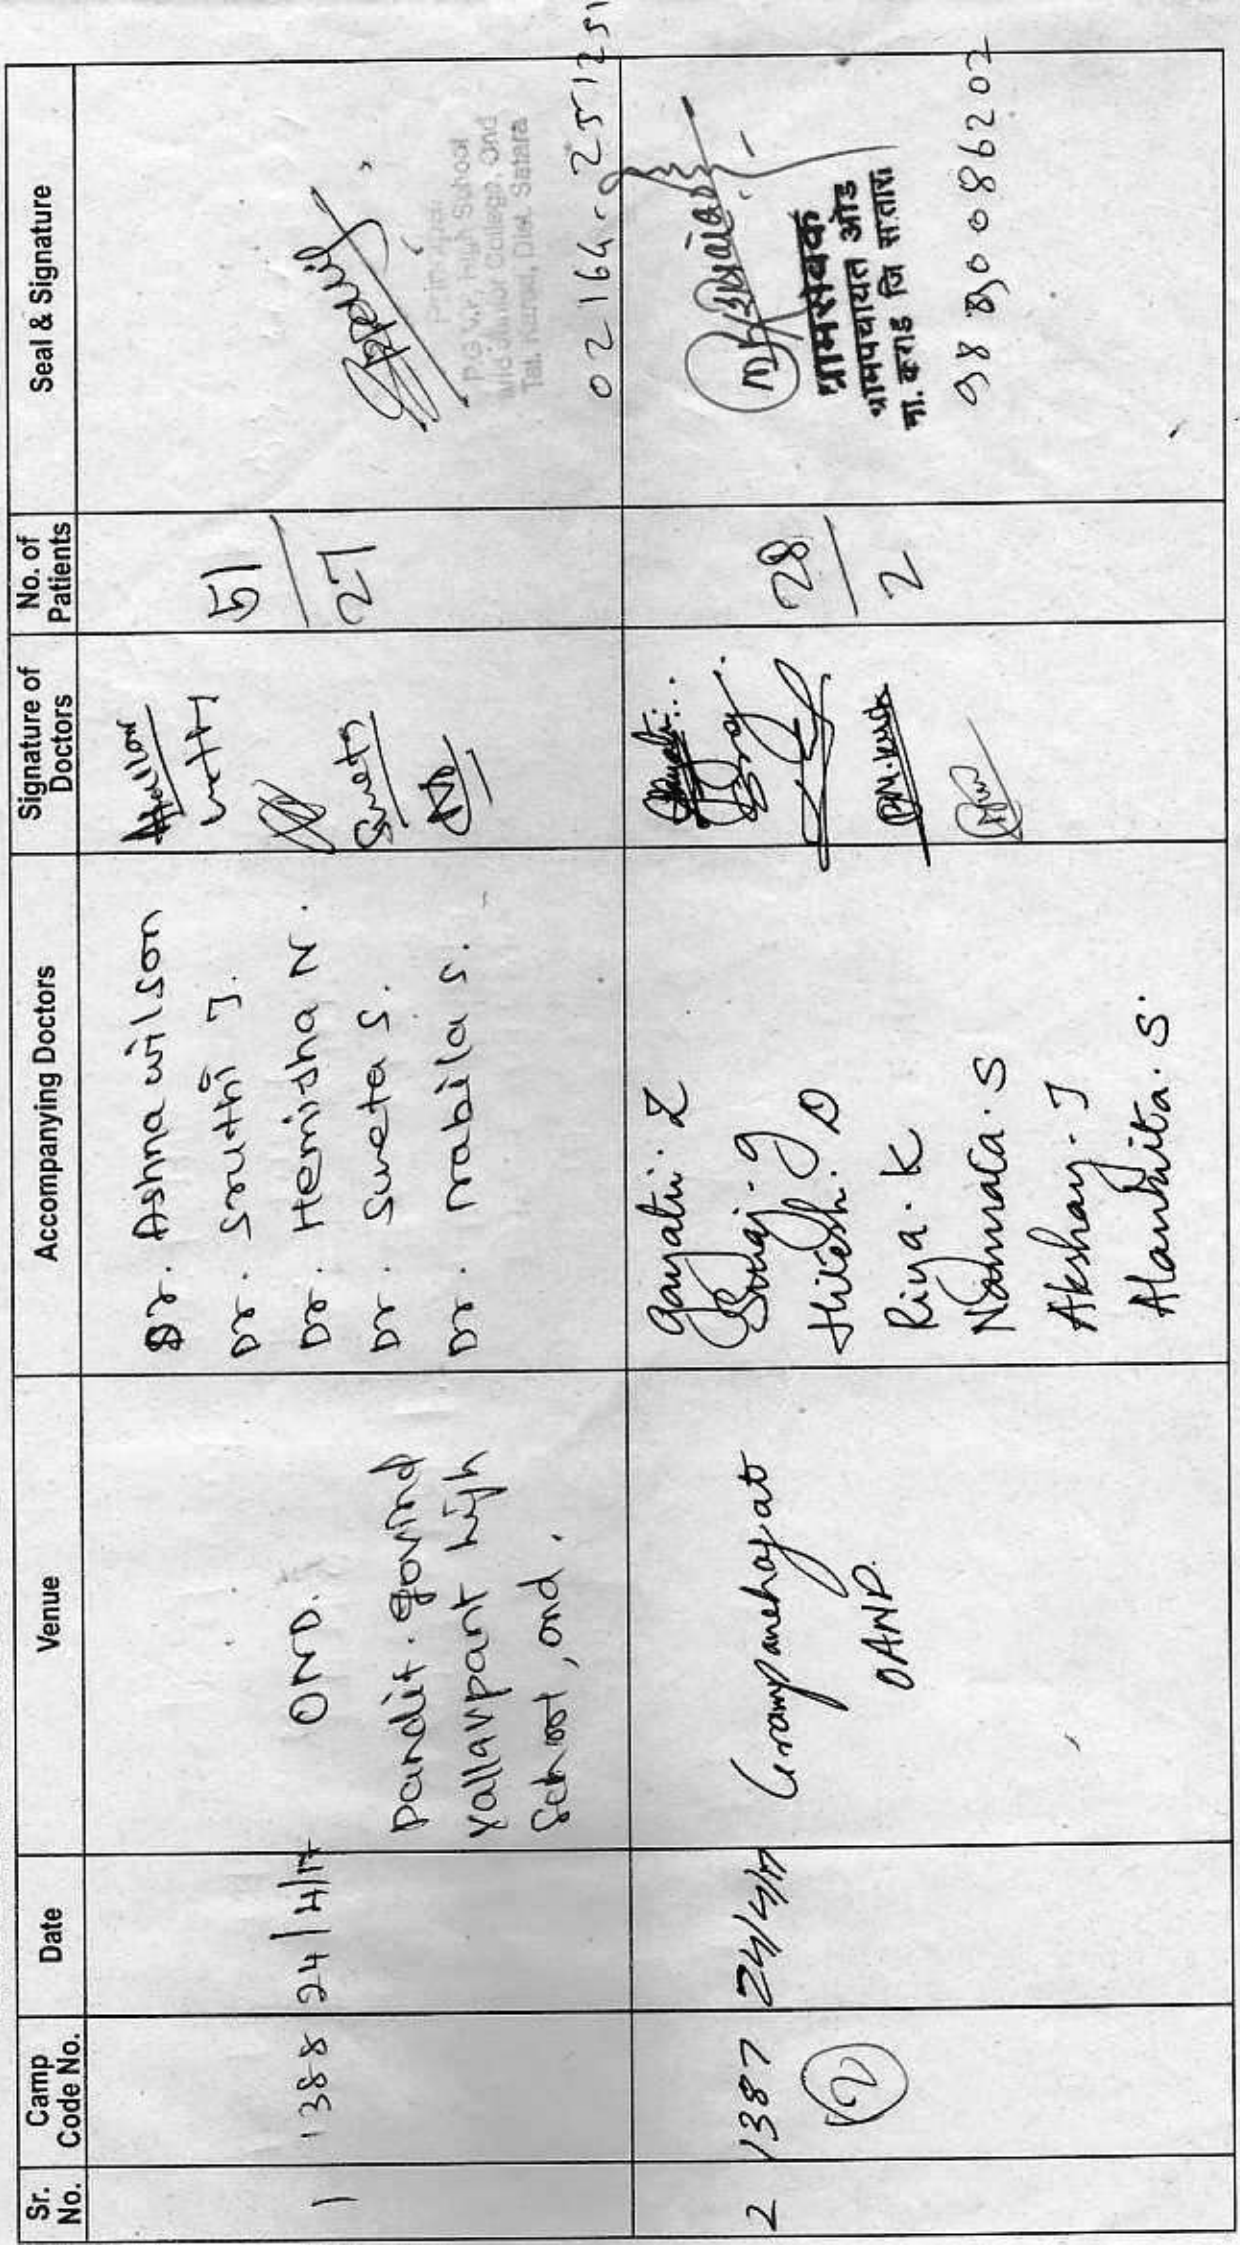 Sr. No.
Camp Code No.
Date
Venue
Accompanying Doctors
Signature of Doctors
No. of Patients
Seal & Signature
1
1388
24/4/17
OND.
Pandit. Govind
Vallavpant high
School, ond.
Dr. Ashna wilson
Dr. Sruthi J.
Dr. Hemisha N.
Dr. Sweta S.
Dr. Nabila S.
Sweta
51
27
Principal
P.G.V.P. High School
and Junior College, Ond
Tal. Karad, Dist. Satara
02164-251251
2
1387
2
24/4/17
Grampanchayat
OAND.
Gayatri. Z
Suraj. G
Hitesh. D
Riya. K
Namrata. S
Akshay. J
Alankita. S.
28
2
ग्रामसेवक
ग्रामपंचायत ओंड
ता. कराड जि सातारा